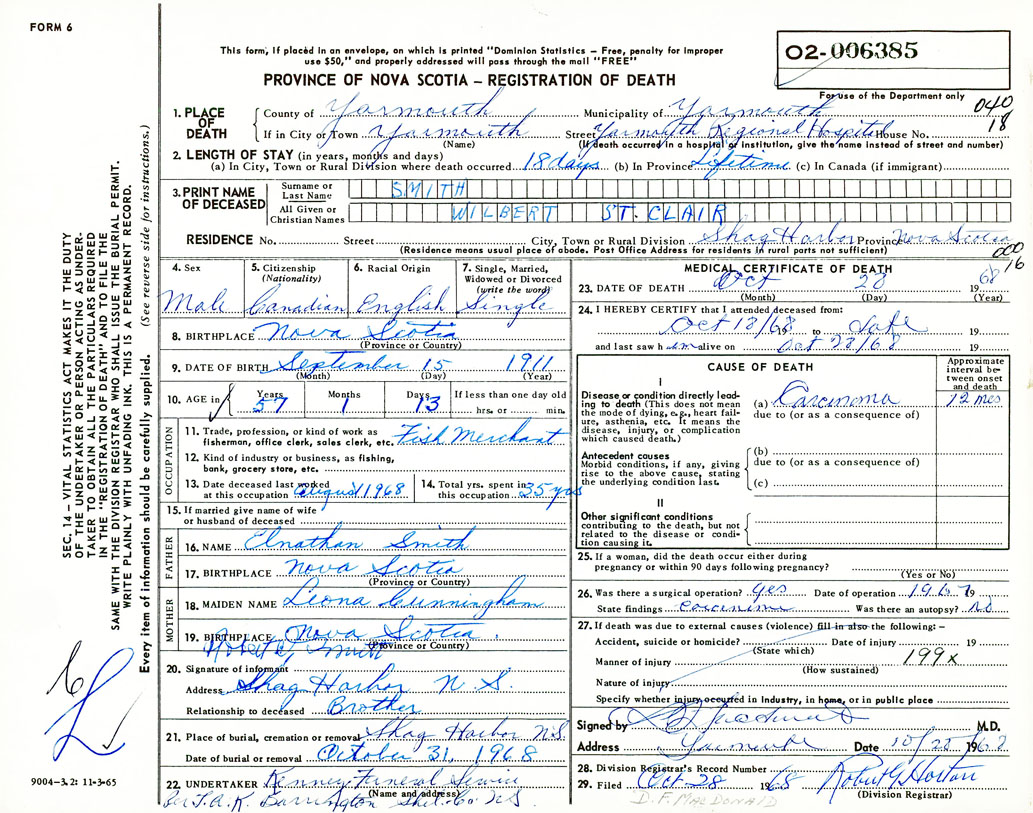 FORM 6
This form, if placed in an envelope, on which is printed "Dominion Statistics – Free, penalty for improper
use $50," and properly addressed will pass through the mail "FREE"
PROVINCE OF NOVA SCOTIA – REGISTRATION OF DEATH
02-006385
For use of the Department only
040
18
1. PLACE OF DEATH
County of Yarmouth Municipality of Yarmouth
If in City or Town Yarmouth Street Yarmouth Regional Hospital House No.
(Name) (If death occurred in a hospital or institution, give the name instead of street and number)
2. LENGTH OF STAY (in years, months and days)
(a) In City, Town or Rural Division where death occurred 18 days (b) In Province Lifetime (c) In Canada (if immigrant)
3. PRINT NAME OF DECEASED
Surname or Last Name SMITH
All Given or Christian Names WILBERT ST. CLAIR
RESIDENCE No. Street City, Town or Rural Division Shag Harbor Province Nova Scotia
(Residence means usual place of abode. Post Office Address for residents in rural parts not sufficient)
000
16
4. Sex Male
5. Citizenship (Nationality) Canadian
6. Racial Origin English
7. Single, Married, Widowed or Divorced (write the word) Single
8. BIRTHPLACE Nova Scotia
(Province or Country)
9. DATE OF BIRTH September 15 1911
(Month) (Day) (Year)
10. AGE in Years 57 Months 1 Days 13 If less than one day old hrs. or min.
OCCUPATION
11. Trade, profession, or kind of work as
fisherman, office clerk, sales clerk, etc. Fish Merchant
12. Kind of industry or business, as fishing,
bank, grocery store, etc.
13. Date deceased last worked at this occupation August 1968
14. Total yrs. spent in this occupation 35 yrs
15. If married give name of wife
or husband of deceased
FATHER
16. NAME Elnathan Smith
17. BIRTHPLACE Nova Scotia
(Province or Country)
MOTHER
18. MAIDEN NAME Leona Cunningham
19. BIRTHPLACE Nova Scotia
(Province or Country)
20. Signature of informant Smith
Address Shag Harbor N.S.
Relationship to deceased Brother
21. Place of burial, cremation or removal Shag Harbor N.S.
Date of burial or removal October 31, 1968
22. UNDERTAKER Kenney Funeral Service
(Name and address)
Barrington Shel. Co. N.S.
MEDICAL CERTIFICATE OF DEATH
23. DATE OF DEATH Oct 28 1968
(Month) (Day) (Year)
24. I HEREBY CERTIFY that I attended deceased from:
Oct 18/68 19 to Date 19
and last saw him alive on Oct 28/68 19
CAUSE OF DEATH
Approximate interval between onset and death
I
Disease or condition directly leading to death (This does not mean the mode of dying, e.g., heart failure, asthenia, etc. It means the disease, injury, or complication which caused death.)
(a) Carcinoma 12 mos
due to (or as a consequence of)
Antecedent causes
Morbid conditions, if any, giving rise to the above cause, stating the underlying condition last.
(b)
due to (or as a consequence of)
(c)
II
Other significant conditions
contributing to the death, but not related to the disease or condition causing it.
25. If a woman, did the death occur either during
pregnancy or within 90 days following pregnancy?
(Yes or No)
26. Was there a surgical operation? Yes Date of operation 1967 19
State findings Was there an autopsy? No
27. If death was due to external causes (violence) fill in also the following: –
Accident, suicide or homicide? Date of injury 19
(State which)
Manner of injury 199x
(How sustained)
Nature of injury
Specify whether injury occurred in industry, in home, or in public place
Signed by M.D.
Address Yarmouth Date 10/28 1968
28. Division Registrar's Record Number
29. Filed Oct 28 1968 Robert G Horton
(Division Registrar)
D.F. MACDONALD
SEC. 14 – VITAL STATISTICS ACT MAKES IT THE DUTY
OF THE UNDERTAKER OR PERSON ACTING AS UNDER-
TAKER TO OBTAIN ALL THE PARTICULARS REQUIRED
IN THE "REGISTRATION OF DEATH" AND TO FILE THE
SAME WITH THE DIVISION REGISTRAR WHO SHALL ISSUE THE BURIAL PERMIT.
WRITE PLAINLY WITH UNFADING INK. THIS IS A PERMANENT RECORD.
Every item of information should be carefully supplied. (See reverse side for instructions.)
9004-3.2: 11-3-65